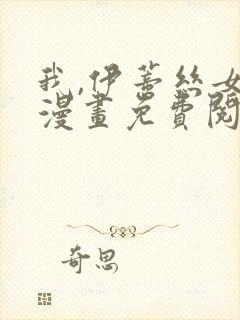 我,伊蒂丝女
漫畫免費閱
奇思